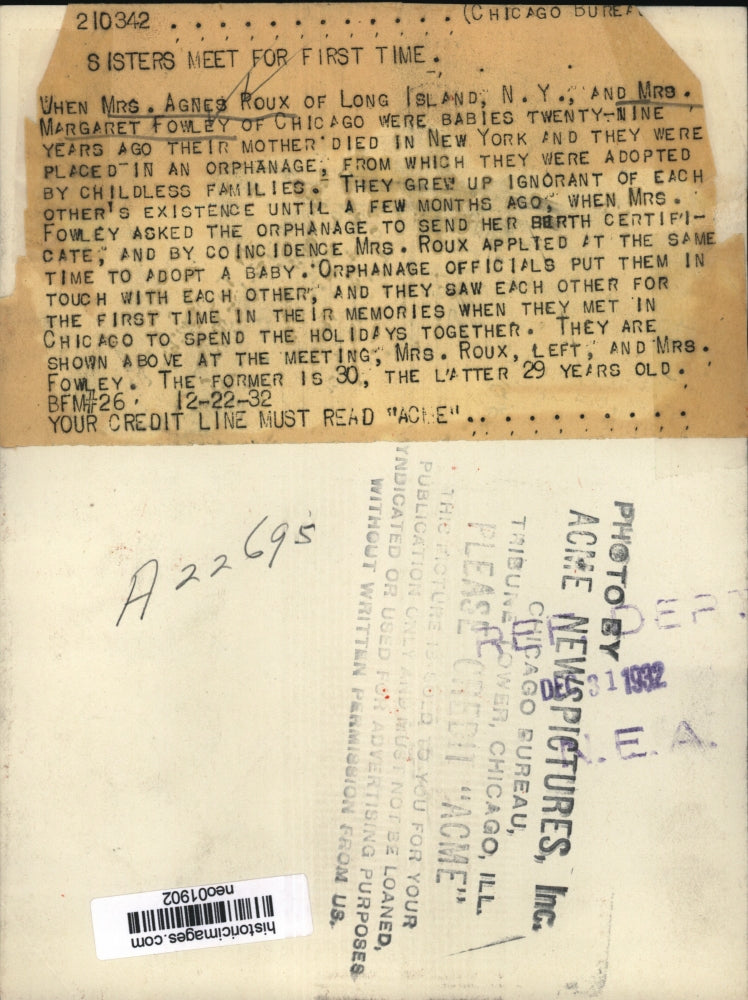 210342 . . . . . . . . . . . . . (CHICAGO BUREA
SISTERS MEET FOR FIRST TIME.
WHEN MRS. AGNES ROUX OF LONG ISLAND, N. Y., AND MRS.
MARGARET FOWLEY OF CHICAGO WERE BABIES TWENTY-NINE
YEARS AGO THEIR MOTHER DIED IN NEW YORK AND THEY WERE
PLACED IN AN ORPHANAGE, FROM WHICH THEY WERE ADOPTED
BY CHILDLESS FAMILIES. THEY GREW UP IGNORANT OF EACH
OTHER'S EXISTENCE UNTIL A FEW MONTHS AGO, WHEN MRS.
FOWLEY ASKED THE ORPHANAGE TO SEND HER BIRTH CERTIFI-
CATE, AND BY COINCIDENCE MRS. ROUX APPLIED AT THE SAME
TIME TO ADOPT A BABY. ORPHANAGE OFFICIALS PUT THEM IN
TOUCH WITH EACH OTHER, AND THEY SAW EACH OTHER FOR
THE FIRST TIME IN THEIR MEMORIES WHEN THEY MET IN
CHICAGO TO SPEND THE HOLIDAYS TOGETHER. THEY ARE
SHOWN ABOVE AT THE MEETING, MRS. ROUX, LEFT, AND MRS.
FOWLEY. THE FORMER IS 30, THE LATTER 29 YEARS OLD.
BFM#26 12-22-32
YOUR CREDIT LINE MUST READ "ACME" . . . . . . . . . .
A22695
PHOTO BY
ACME NEWSPICTURES, Inc.
CHICAGO BUREAU,
TRIBUNE TOWER, CHICAGO, ILL.
PLEASE CREDIT "ACME"
THIS PICTURE IS SOLD TO YOU FOR YOUR
PUBLICATION ONLY AND MUST NOT BE LOANED,
SYNDICATED OR USED FOR ADVERTISING PURPOSES
WITHOUT WRITTEN PERMISSION FROM US.
REF. DEPT
DEC 31 1932
N.E.A.
historicimages.com
neo01902